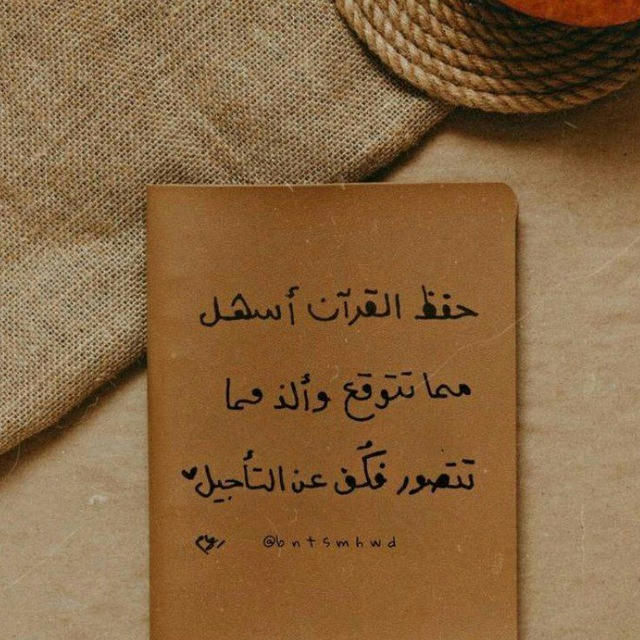 حفظ القرآن أسهل
مما تتوقع وألذ مما
تتصور فكُف عن التأجيل♥
@bntsmhwd